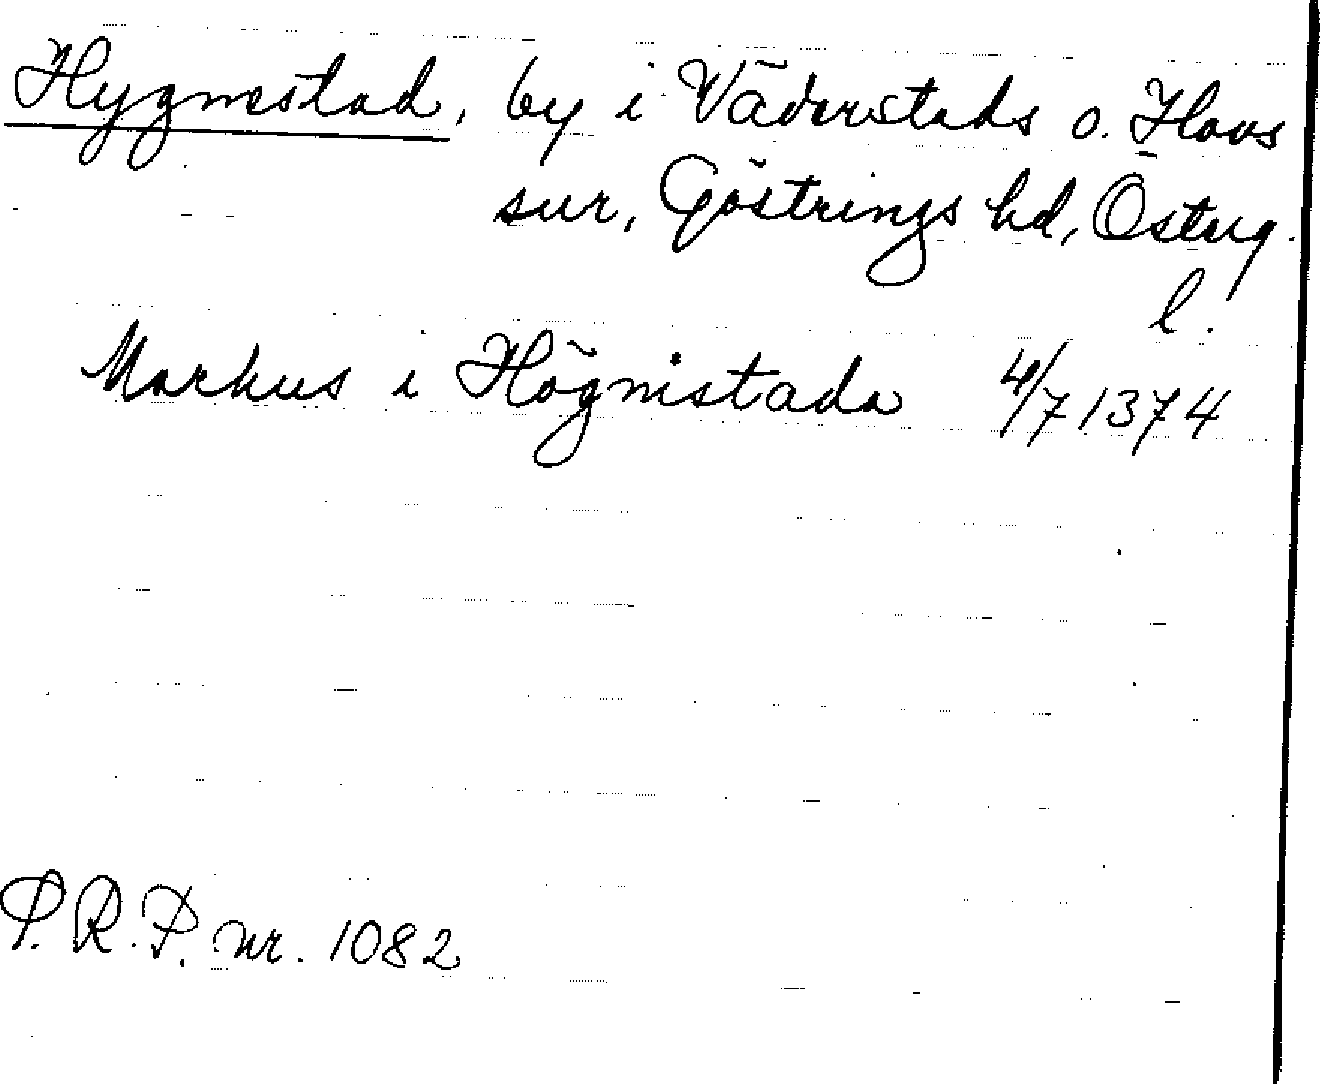 Hygnestad, by i Väderstads o. Hovs
snr, Göstrings hd, Östg.
l.
Markus i Högnistada 4/7 1374
P.R.P. nr. 1082